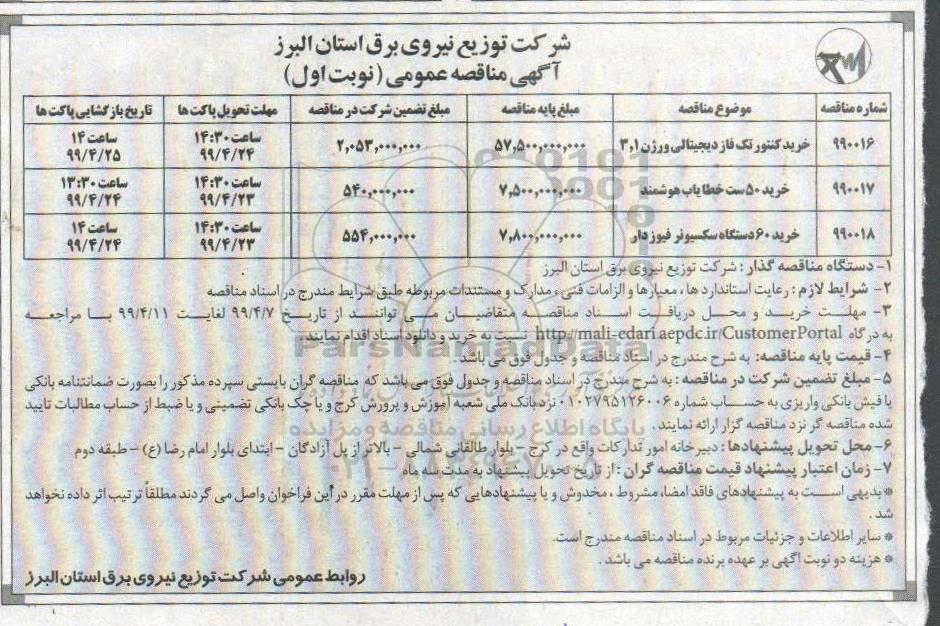 شرکت توزیع نیروی برق استان البرز
آگهی مناقصه عمومی (نوبت اول)
شماره مناقصه موضوع مناقصه مبلغ پایه مناقصه مبلغ تضمین شرکت در مناقصه مهلت تحویل پاکت ها تاریخ بازگشایی پاکت ها
۹۹۰۰۱۶ خرید کنتور تک فاز دیجیتالی ورژن ۳,۱ ۵۷,۵۰۰,۰۰۰,۰۰۰ ۲,۰۵۳,۰۰۰,۰۰۰ ساعت ۱۴:۳۰ ۹۹/۴/۲۴ ساعت ۱۴ ۹۹/۴/۲۵
۹۹۰۰۱۷ خرید ۵۰ ست خطایاب هوشمند ۷,۵۰۰,۰۰۰,۰۰۰ ۵۴۰,۰۰۰,۰۰۰ ساعت ۱۴:۳۰ ۹۹/۴/۲۳ ساعت ۱۳:۳۰ ۹۹/۴/۲۴
۹۹۰۰۱۸ خرید ۶۰ دستگاه سکسیونر فیوز دار ۷,۸۰۰,۰۰۰,۰۰۰ ۵۵۴,۰۰۰,۰۰۰ ساعت ۱۴:۳۰ ۹۹/۴/۲۳ ساعت ۱۴ ۹۹/۴/۲۴
۱- دستگاه مناقصه گذار : شرکت توزیع نیروی برق استان البرز
۲- شرایط لازم : رعایت استاندارد ها ، معیارها و الزامات فنی ، مدارک و مستندات مربوطه طبق شرایط مندرج در اسناد مناقصه
۳- مهلت خرید و محل دریافت اسناد مناقصه متقاضیان می توانند از تاریخ ۹۹/۴/۷ لغایت ۹۹/۴/۱۱ با مراجعه
به درگاه http://mali-edari.aepdc.ir/CustomerPortal نسبت به خرید و دانلود اسناد اقدام نمایند.
۴- قیمت پایه مناقصه: به شرح مندرج در اسناد مناقصه و جدول فوق می باشد.
۵- مبلغ تضمین شرکت در مناقصه : به شرح مندرج در اسناد مناقصه و جدول فوق می باشد که مناقصه گران بایستی سپرده مذکور را بصورت ضمانتنامه بانکی
یا فیش بانکی واریزی به حساب شماره ۰۱۰۲۷۹۵۱۲۶۰۰۶ نزد بانک ملی شعبه آموزش و پرورش کرج و یا چک بانکی تضمینی و یا ضبط از حساب مطالبات تایید
شده مناقصه گر نزد مناقصه گزار ارائه نمایند.
۶- محل تحویل پیشنهادها : دبیر خانه امور تدارکات واقع در کرج - بلوار طالقانی شمالی - بالاتر از پل آزادگان - ابتدای بلوار امام رضا (ع) - طبقه دوم
۷- زمان اعتبار پیشنهاد قیمت مناقصه گران : از تاریخ تحویل پیشنهاد به مدت سه ماه
* بدیهی است به پیشنهادهای فاقد امضا، مشروط ، مخدوش و یا پیشنهادهایی که پس از مهلت مقرر در این فراخوان واصل می گردند مطلقاً ترتیب اثر داده نخواهد
شد .
* سایر اطلاعات و جزئیات مربوط در اسناد مناقصه مندرج است.
* هزینه دو نوبت آگهی بر عهده برنده مناقصه می باشد .
روابط عمومی شرکت توزیع نیروی برق استان البرز
ParsNamadData
پایگاه اطلاع رسانی مناقصه و مزایده